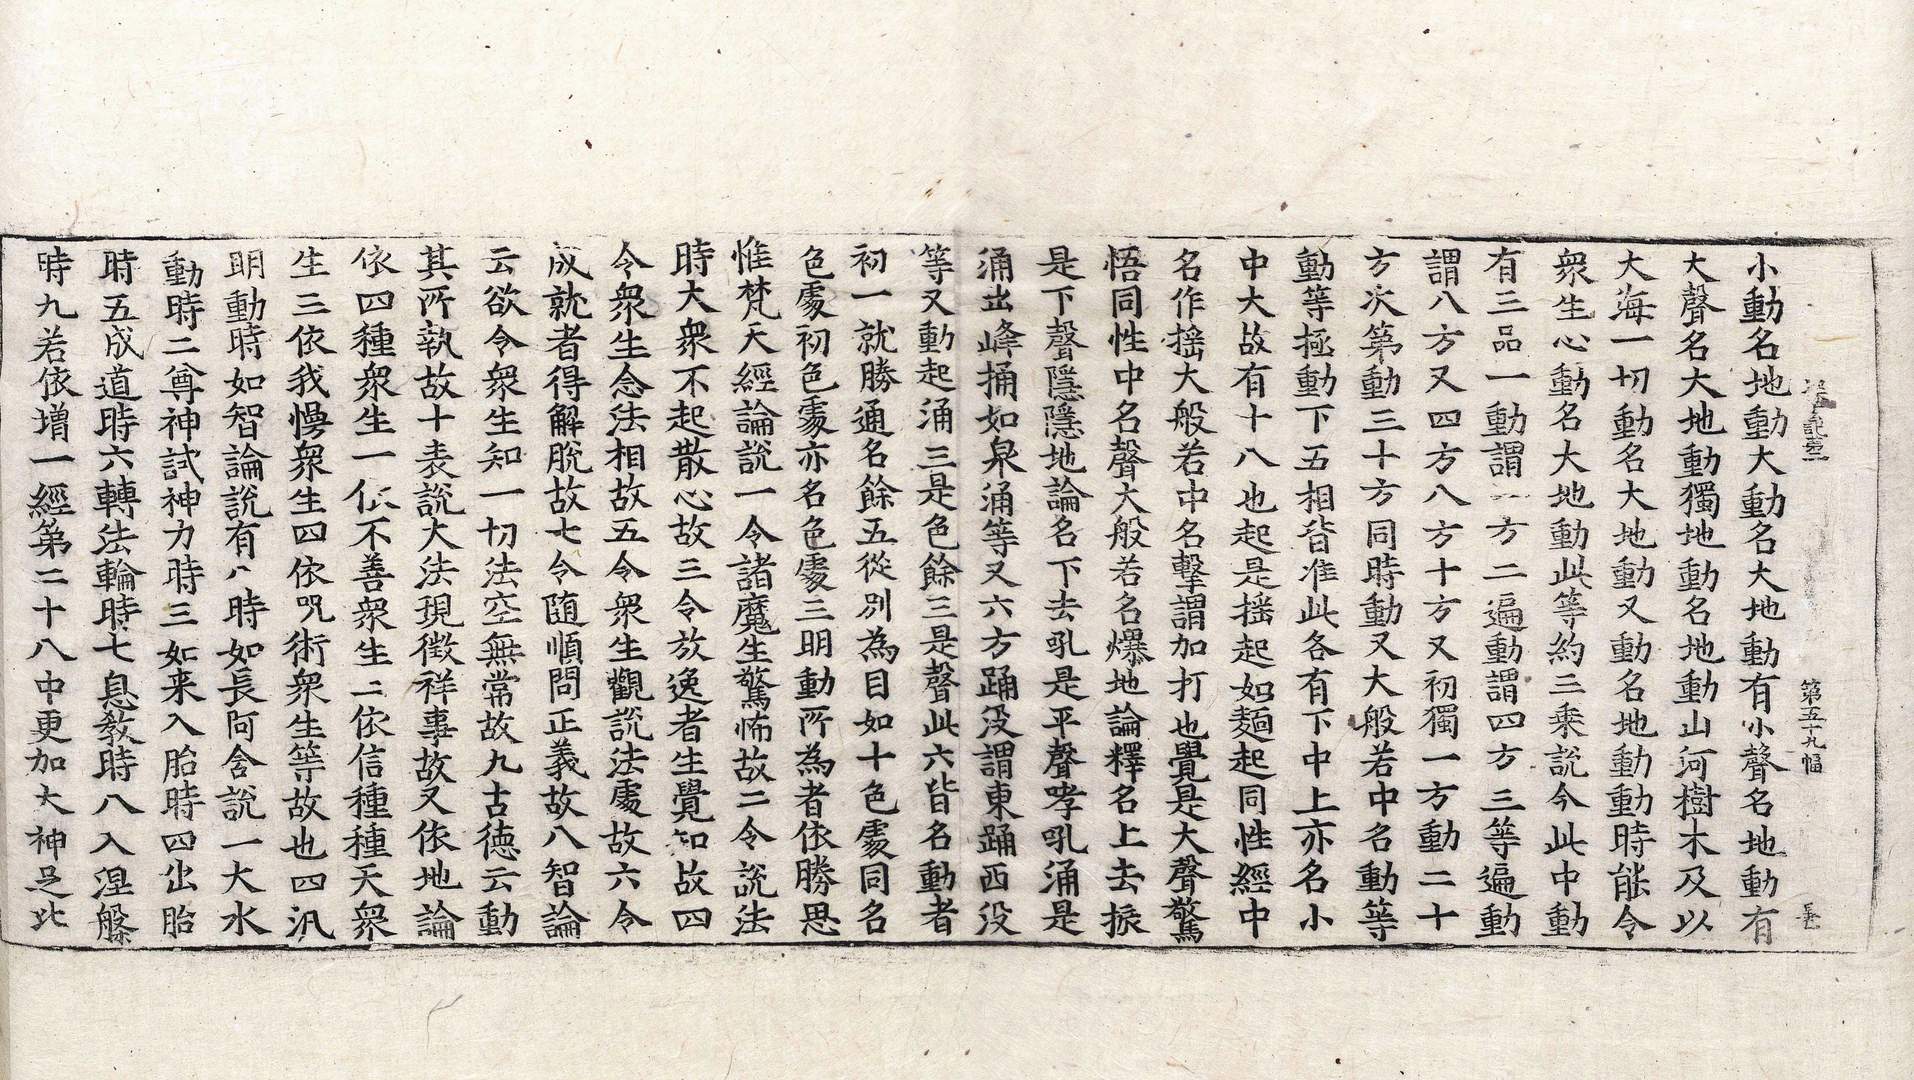 記三 第五十九幅
小動名地動大動名大地動有小聲名地動有
大聲名大地動獨地動名地動山河樹木及以
大海一切動名大地動又動名地動動時能令
衆生心動名大地動此等約三乘說今此中動
有三品一動謂一方二遍動謂四方三等遍動
謂八方又四方八方十方又初獨一方動二十
方次第動三十方同時動又大般若中名動等
動等極動下五相皆准此各有下中上亦名小
中大故有十八也起是揺起如麵起同性經中
名作揺大般若中名擊謂加打也覺是大聲驚
悟同性中名聲大般若名爆地論釋名上去振
是下聲隱隱地論名下去吼是平聲哮吼涌是
涌出峰捅如泉涌等又六方踊没謂東踊西没
等又動起涌三是色餘三是聲此六皆名動者
初一就勝通名餘五從別為目如十色處同名
色處初色處亦名色處三明動所為者依勝思
惟梵天經論說一令諸魔生驚怖故二令說法
時大衆不起散心故三令放逸者生覺知故四
令衆生念法相故五令衆生觀說法處故六令
成就者得解脫故七令随順問正義故八智論
云欲令衆生知一切法空無常故九古德云動
其所執故十表說大法現徴祥事故又依地論
依四種衆生一依不善衆生二依信種種天衆
生三依我慢衆生四依呪術衆生等故也四汎
明動時如智論說有八時如長阿含說一大水
動時二尊神試神力時三如来入胎時四出胎
時五成道時六轉法輪時七息教時八入涅槃
時九若依增一經第二十八中更加大神足此